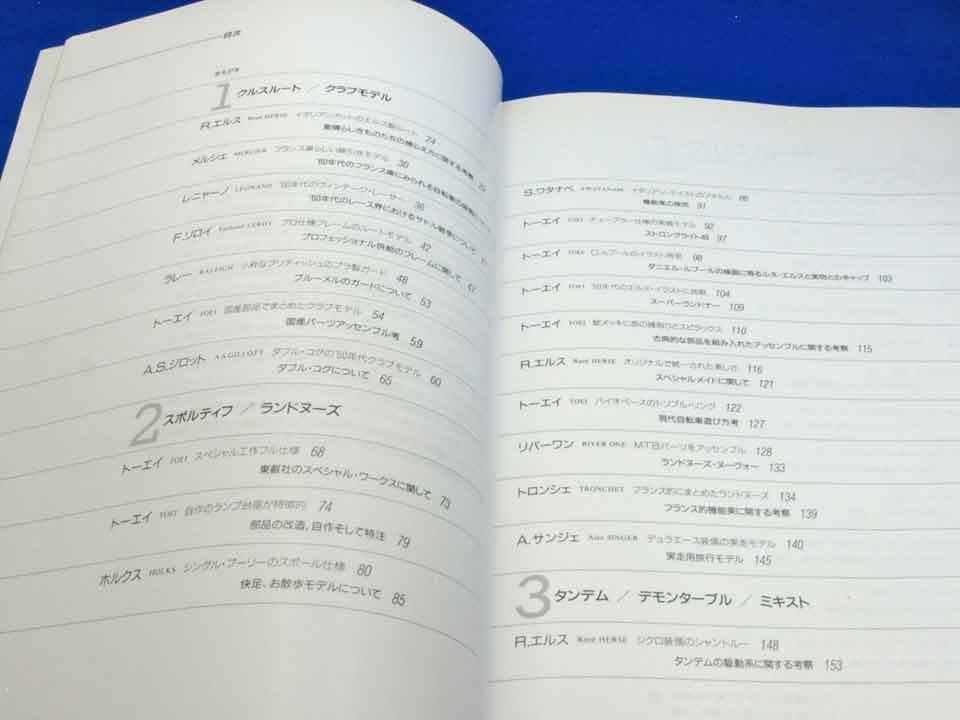 目次
まえがき
1 クルスルート / クラブモデル
R.エルス René HERSE イタリアンカットのエルス製ルート 24
素晴らしきものたちの捕らえ方に関する考察 29
メルシェ MERCIER フランス車らしい線引きモデル 30
'60年代のフランス車にみられる自転車の
レニャーノ LEGNANO '60年代のヴィンテージ・レーサー 36
'60年代のレース界におけるサドル戦争について 41
F.ソロイ プロ仕様フレームのルートモデル 42
プロフェッショナル供給のフレームに関して 47
ラレー RALEIGH 小粋なブリティッシュのプラ製ガード 48
ブルーメルのガードについて 53
トーエイ TOEI 国産部品でまとめたクラブモデル 54
国産パーツアッセンブル考 59
A.S.ジロット A.S.GILLOTT ダブル・コグの'50年代クラブモデル 60
ダブル・コグについて 65
2 スポルティフ / ランドヌーズ
トーエイ TOEI スペシャル工作フル仕様 68
東叡社のスペシャル・ワークスに関して 73
トーエイ TOEI 自作のランプ台座が特徴的 74
部品の改造、自作そして特注 79
ホルクス HOLKS シングル・プーリーのスポール仕様 80
快足、お散歩モデルについて 85
S.ワタナベ S.WATANABE イタリアン・テイストのスポルティフ 86
機能美の追究 91
トーエイ TOEI チューブラー仕様の実戦モデル 92
ストロングライト48 97
トーエイ TOEI D.ルブールのイラスト再現 98
ダニエル・ルブールの線画に観るルネ・エルスと実物とのギャップ 103
トーエイ TOEI '50年代のエルス・イラストに挑戦 104
スーパーランドナー 109
トーエイ TOEI 総メッキに感の機微ひとスピラックス 110
古典的な部品を組み入れたアッセンブルに関する考察 115
R.エルス René HERSE オリジナルで統一された美しさ 116
スペシャルメイドに関して 121
トーエイ TOEI バイオペースのトリプル・リング 122
現代自転車遊び方考 127
リバーワン RIVER ONE MTBパーツをアッセンブル 128
ランドヌーズ・ヌーヴォー 133
トロンシェ TRONCHET フランス的にまとめたランドヌーズ 134
フランス的機能美に関する考察 139
A.サンジェ Alex SINGER デュラエース装備の実走モデル 140
実走用旅行モデル 145
3 タンデム / デモンターブル / ミキスト
R.エルス René HERSE シクロ装備のシャントルー 148
タンデムの駆動系に関する考察 153